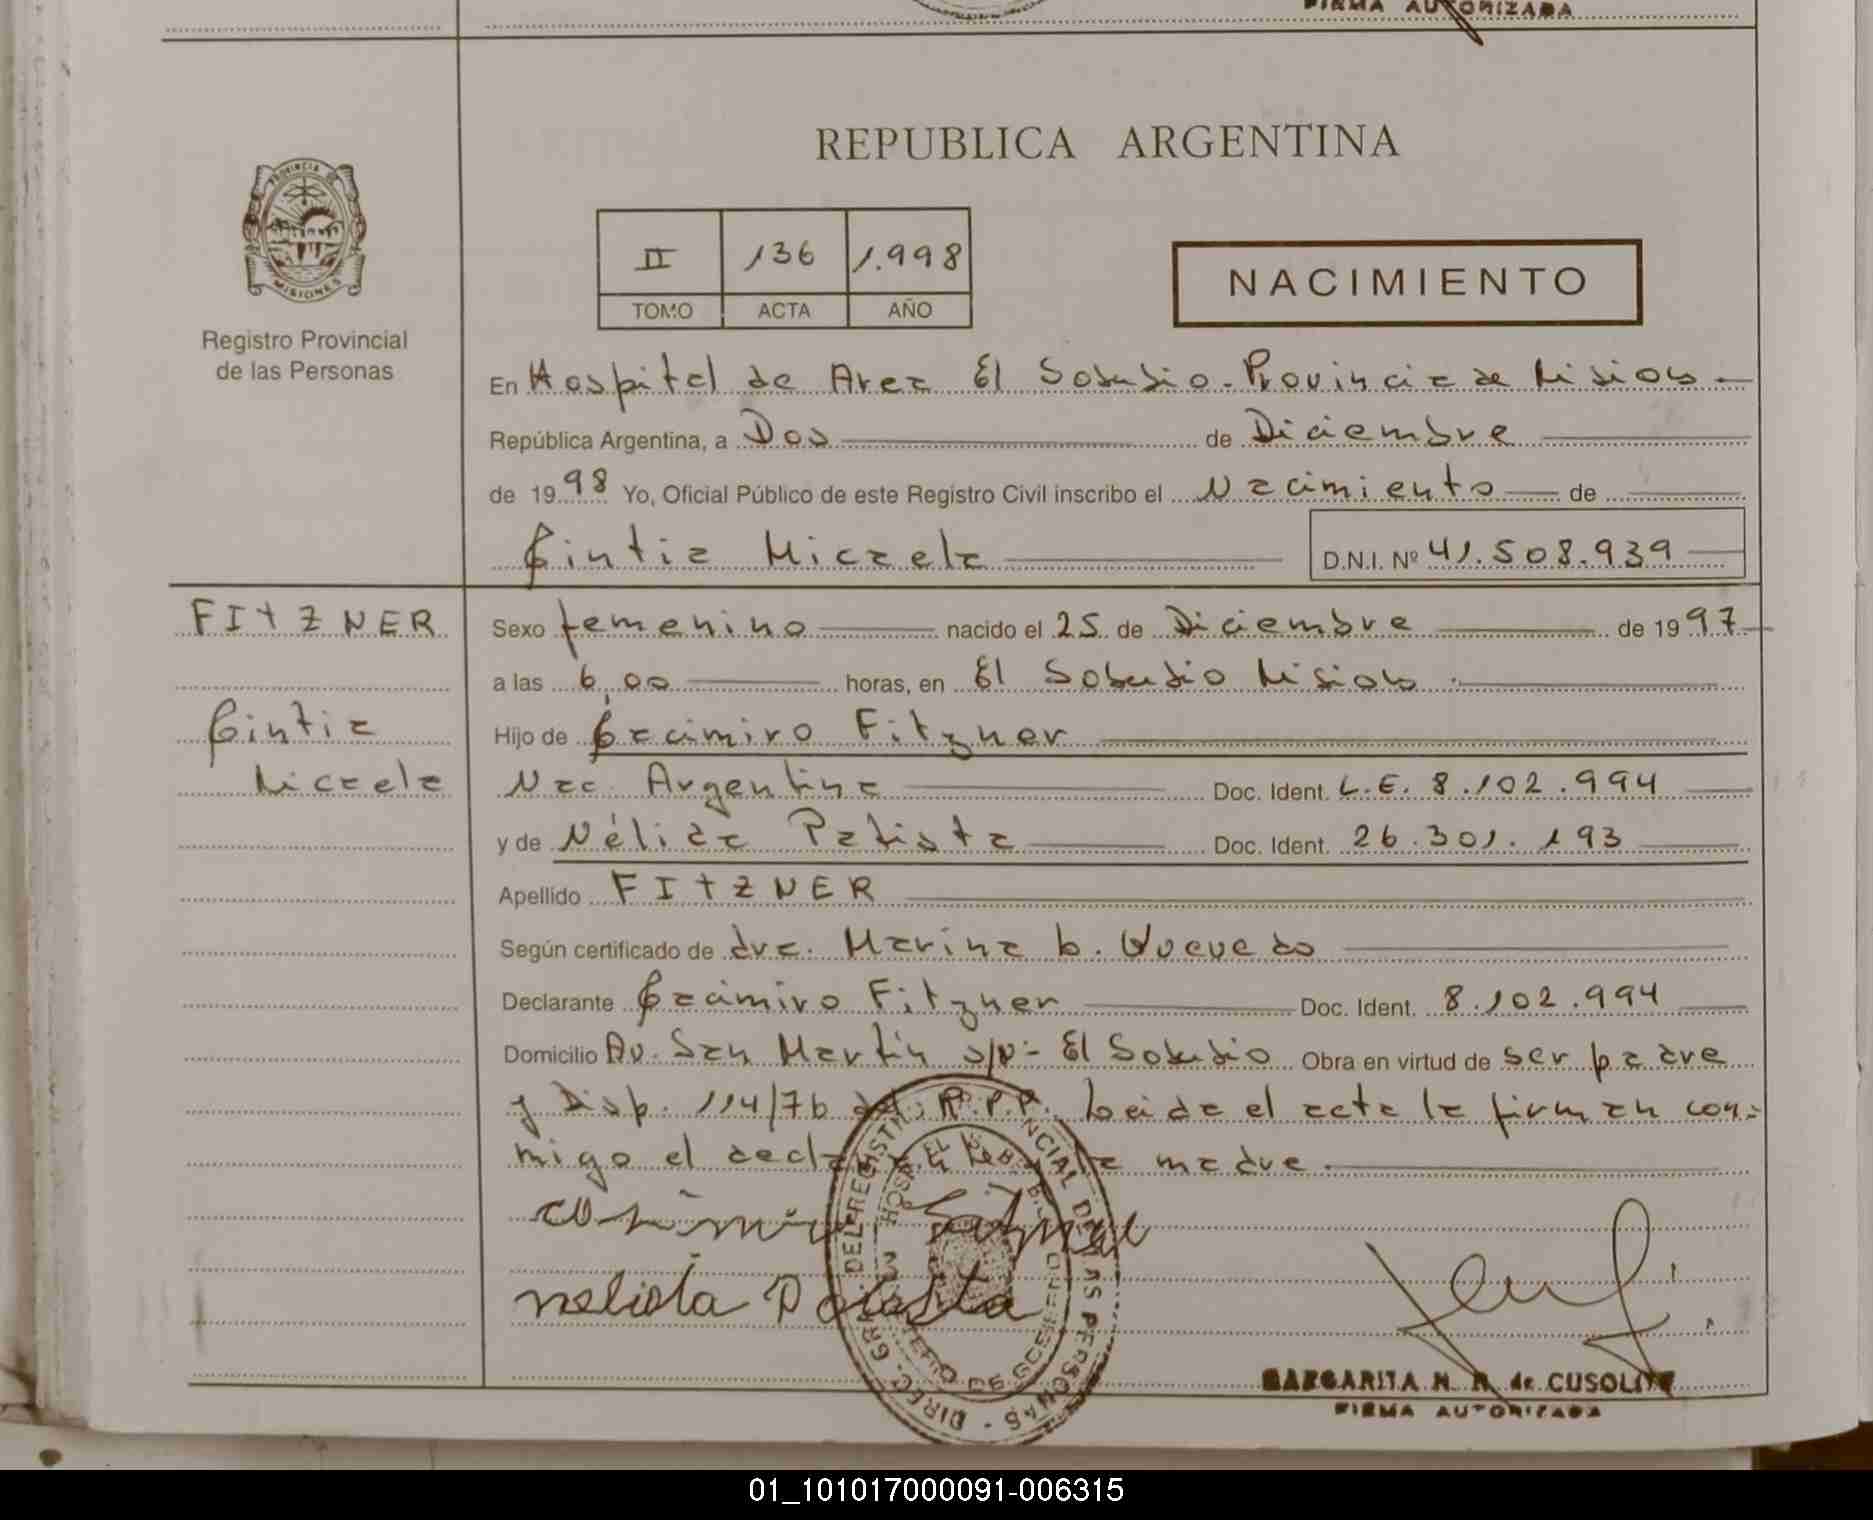 FIRMA AUTORIZADA
PROVINCIA DE
MISIONES
Registro Provincial
de las Personas
REPUBLICA ARGENTINA
II 136 1.998
TOMO ACTA AÑO
NACIMIENTO
En Hospital de Area El Soberbio - Provincia de Misiones
República Argentina, a Dos de Diciembre
de 1998 Yo, Oficial Público de este Registro Civil inscribo el Nacimiento de
Cintia Micaela D.N.I. Nº 41.508.939
FITZNER
Cintia
Micaela
Sexo femenino nacido el 25 de Diciembre de 1997
a las 6,00 horas, en El Soberbio Misiones
Hijo de Casimiro Fitzner
Nac. Argentina Doc. Ident. L.E. 8.102.994
y de Nélida Patista Doc. Ident. 26.301.193
Apellido FITZNER
Según certificado de dra. Marina b. Quevedo
Declarante Casimiro Fitzner Doc. Ident. 8.102.994
Domicilio Av. San Martín s/n - El Soberbio Obra en virtud de ser padre
y Disp. 114/76 del R.P.P. Leida el acta la firman con-
migo el y la madre
nelida
DIREC. GRAL. DEL REG. PROVINCIAL DE LAS PERSONAS
MARGARITA N. R. de CUSOLITO
FIRMA AUTORIZADA
01_101017000091-006315